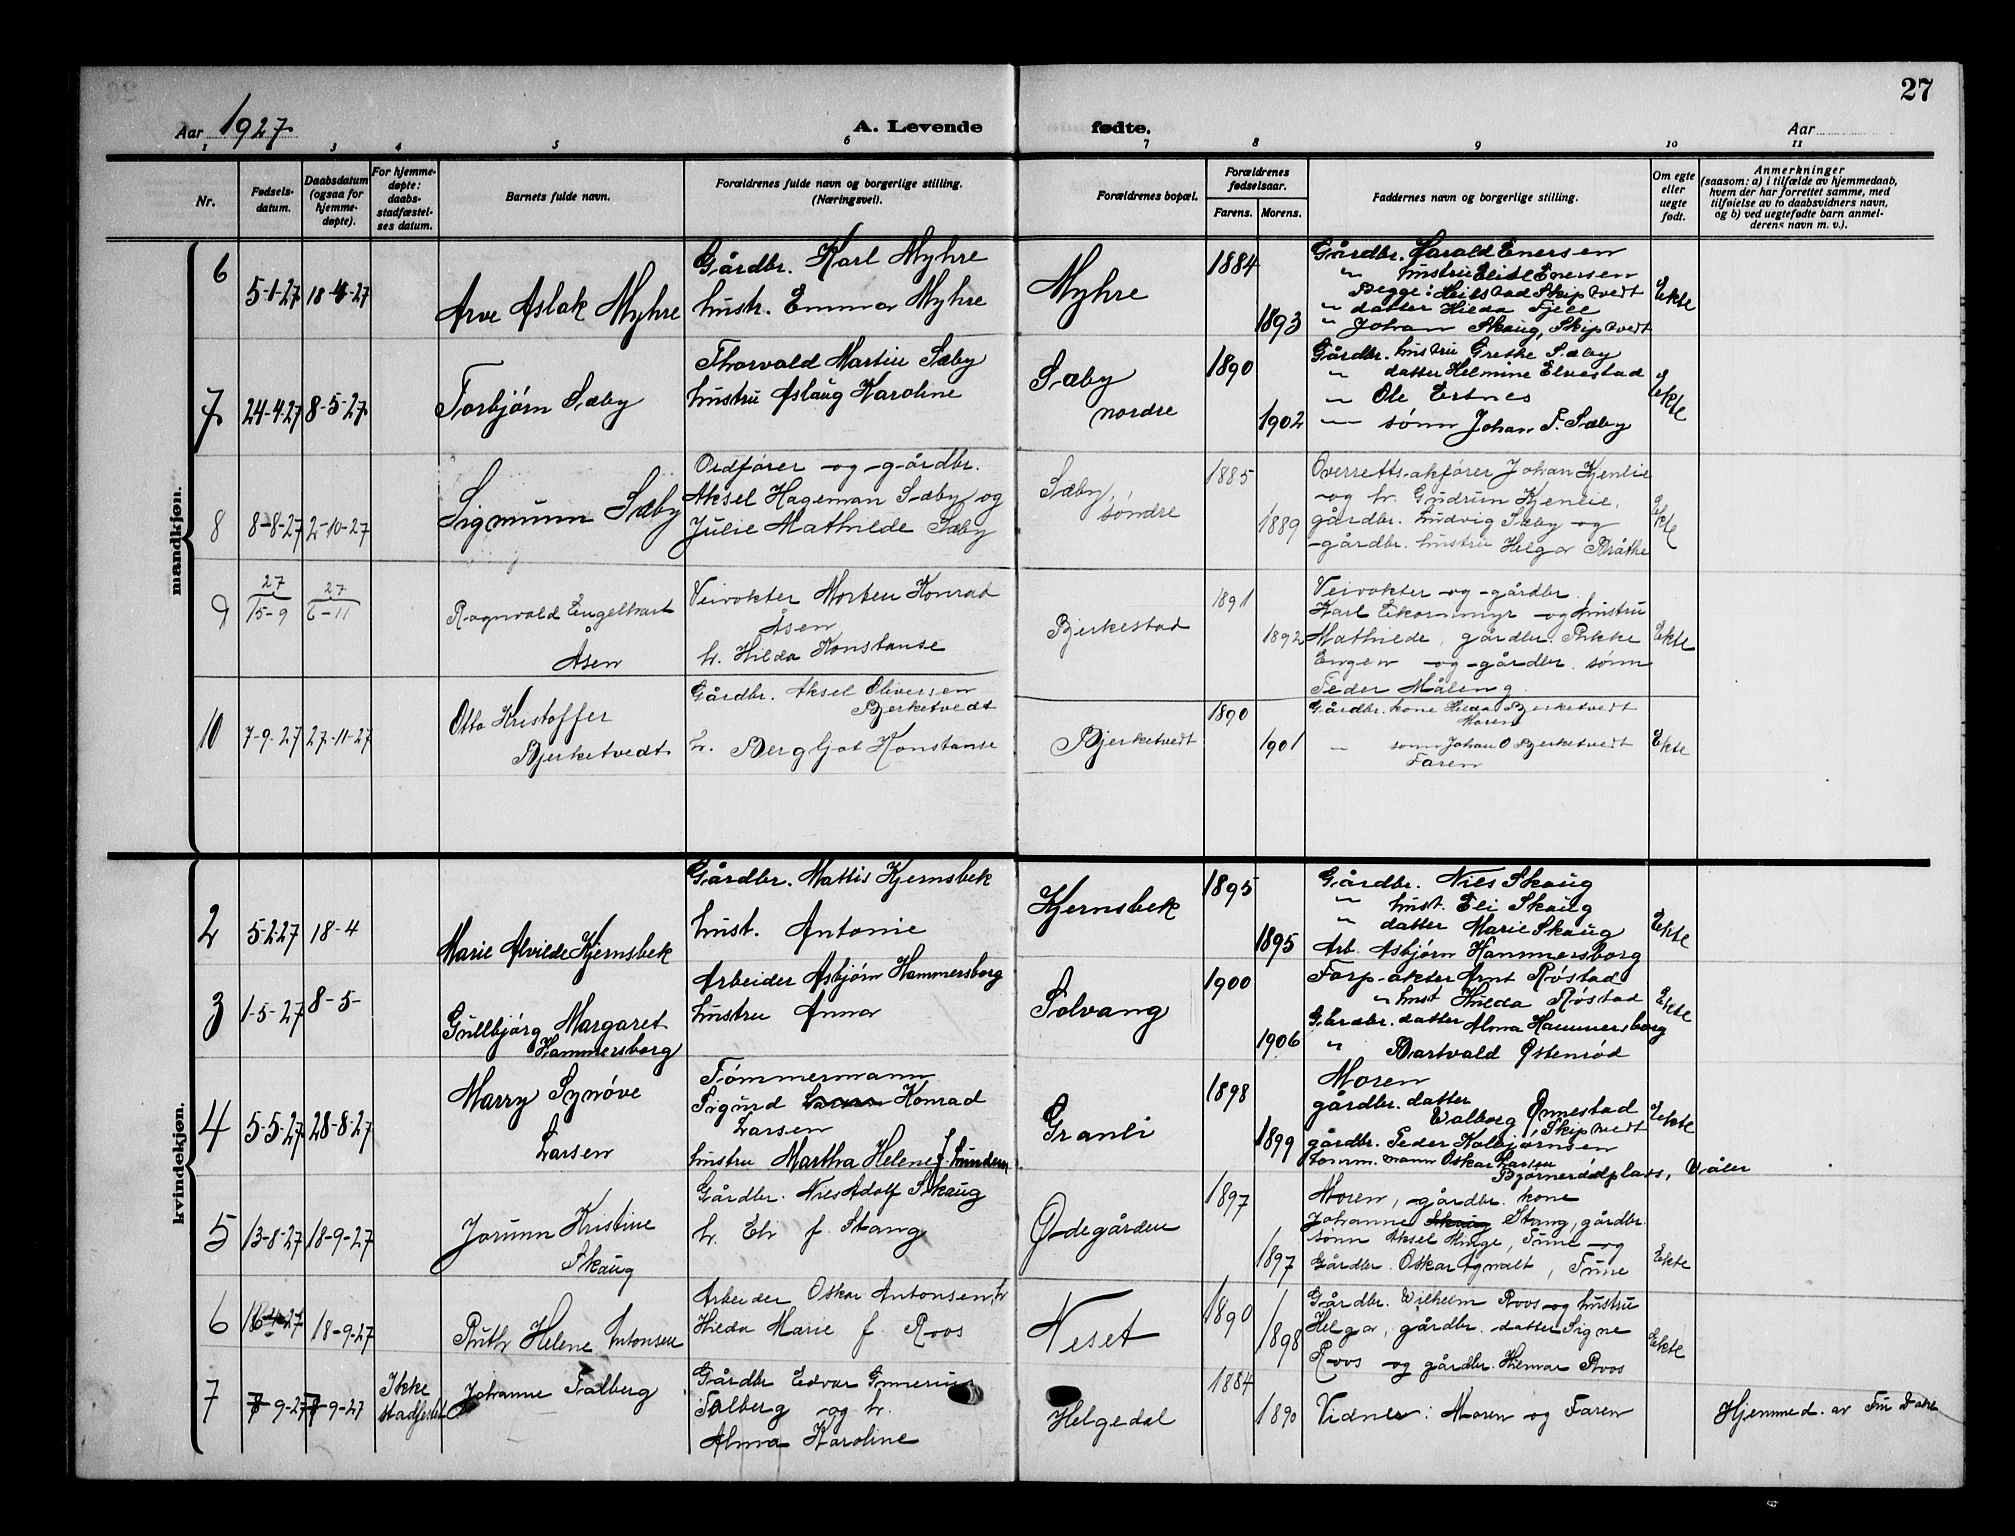 27
Aar 1927
A. Levende
fødte.
Aar
1
3
4
5
6
7
8
9
10
11
Nr.
Fødsels-
datum.
Daabsdatum
(ogsaa for
hjemme-
døpte).
For hjemme-
døpte:
daabs-
stadfæstel-
ses datum.
Barnets fulde navn.
Forældrenes fulde navn og borgerlige stilling.
(Næringsvei).
Forældrenes bopæl.
Forældrenes
fødselsaar.
Farens. Morens.
Faddernes navn og borgerlige stilling.
Om egte
eller
uegte
født.
Anmerkninger
(saasom: a) i tilfælde av hjemmedaab,
hvem der har forrettet samme, med
tilføielse av to daabsvidners navn,
og b) ved uegtefødte barn anmel-
derens navn m. v.).
mandkjøn.
6
5-1-27
18-4-27
Arve Aslak Myhre
Gårdbr. Karl Myhre
hustr. Emma Myhre
Myhre
1884
1893
Gårdbr. Harald Enersen
" hustru Enersen
Begge: Skiptvedt
" datter Hilda Fjell
" Johan Skaug, Skiptvedt
Ekte
7
24-4-27
8-5-27
Torbjørn Sæby
Thorvald Martin Sæby
hustru Aslaug Karoline
Sæby
nordre
1890
1902
Gårdbr. hustru Grethe Sæby
" datter Helmine Elvestad
" Ole Ertnes
" sønn Johan T. Sæby
Ekte
8
8-8-27
2-10-27
Sigmunn Sæby
Ordfører og gårdbr.
Aksel Hageman Sæby og
Julie Mathilde Sæby
Sæby
søndre
1885
1889
Overrettssakfører Johan Kjenlie
og h. Gudrun Kjenlie,
gårdbr. Ludvig Sæby og
gårdbr. hustru Helga Bråthe
Ekte
9
27
15-9
27
6-11
Ragnvald Engelhart
Åsen
Veivokter Morten Konrad
Åsen
h. Hilda Konstanse
Bjerkestad
1891
1892
Veivokter og gårdbr.
Karl Ekornmyr og hustru
Mathilde, gårdbr. Rikke
Engen og gårdbr. sønn
Peder Måleng
Ekte
10
7-9-27
27-11-27
Otto Kristoffer
Bjerketvedt
Gårdbr. Aksel Oliversen
Bjerketvedt
h. Bergljot Konstanse
Bjerketvedt
1890
1901
Gårdbr. kone Hilda Bjerketvedt
Moren
" sønn Johan O Bjerketvedt
Faren
Ekte
kvindekjøn.
2
5-2-27
18-4
Marie Alvilde Kjernsbek
Gårdbr. Mattis Kjernsbek
hust. Antonie
Kjernsbek
1895
1895
Gårdbr. Nils Skaug
" hust. Eli Skaug
" datter Marie Skaug
Arb. Asbjørn Hammersborg
Ekte
3
1-5-27
8-5-
Gullbjørg Margaret
Hammersborg
Arbeider Asbjørn Hammersborg
hustru Anna
Solvang
1900
1906
Forp-akter Arnt Røstad
" hust Hilda Røstad
Gårdbr. datter Alma Hammersborg
" Bartvald Østenrød
Ekte
4
5-5-27
28-8-27
Marry Synøve
Larsen
Tømmermann
Sigurd Larsen Konrad
Larsen
hustru Martha Helene f. Lunden
Granli
1898
1899
Moren
gårdbr. datter
Valborg Ømestad
Skiptvedt
gårdbr. Peder Kolbjørnsen
tømm. mann Oskar Larsen
Bjørnerødplass, Våler
Ekte
5
13-8-27
18-9-27
Jorunn Kristine
Skaug
Gårdbr. Nils Adolf Skaug
h. Eli f. Stang
Ødegården
1897
1897
Moren, gårdbr. kone
Johanne Skaug Stang, gårdbr.
sønn Aksel Hinge, Tune og
Gårdbr. Oskar Agnalt, Tune
Ekte
6
18-9-27
Ruth Helene Antonsen
Arbeider Oskar Antonsen, h
Hilda Marie f. Roos
Neset
1890
1898
Gårdbr. Wilhelm Roos og hustru
Helga, gårdbr. datter Signe
Roos og gårdbr. Hilmar Roos
Ekte
7
7-9-27
7-9-27
Ikke
stadfestet
Johanne Talberg
Gårdbr Edvar
Talberg og h.
Alma Karoline
Helgedal
1884
1890
Vidner: Moren og Faren
Hjemmed. av